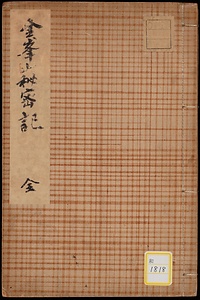 金峯山秘密記 全
1818